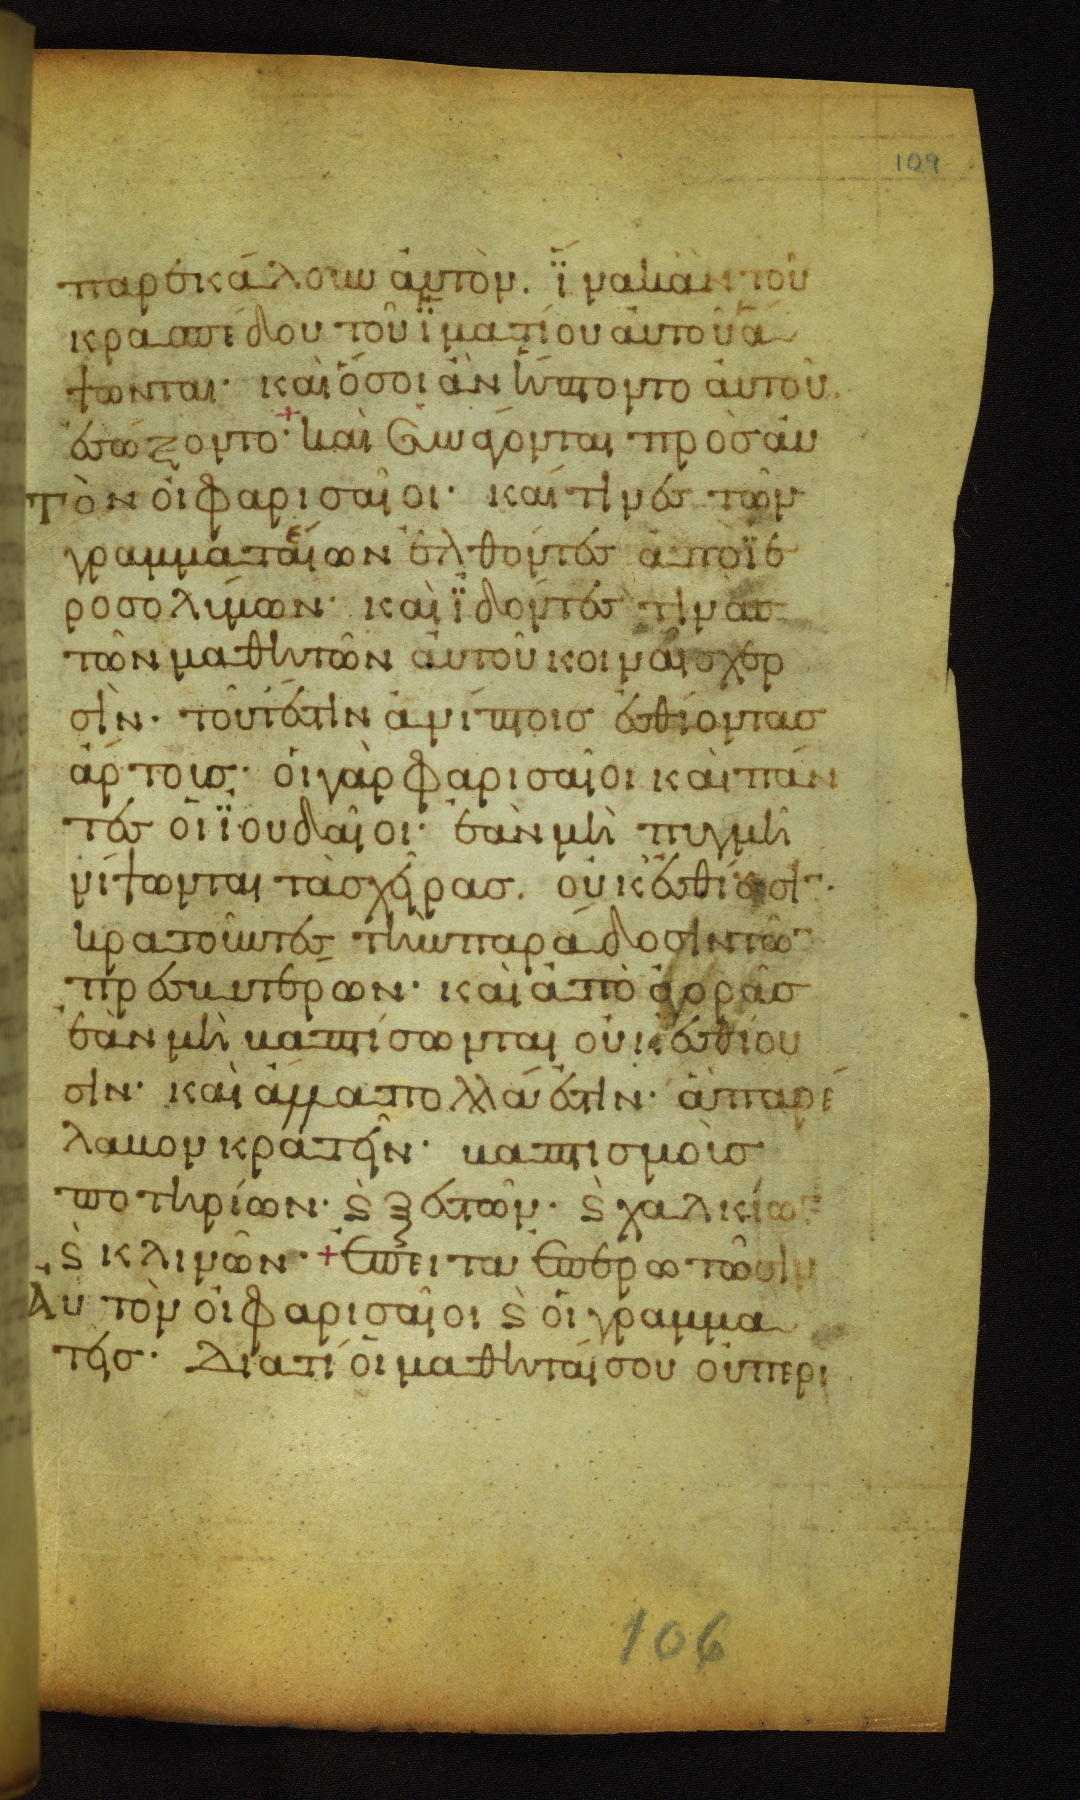 109
παρεκάλουν ἀυτὸν. ἵνα κὰν τοῦ
κρασπέδου τοῦ ἱματίου ἀυτοῦ ἅ
ψωνται· καὶ ὅσοι ἀν ἥπτοντο ἀυτοῦ.
ἐσώζοντο· + καὶ συνάγονται πρὸσ ἀυ
Τὸν ὁι φαρισαῖοι· καί τινεσ τῶν
γραμματαίεων ἐλθόντεσ ἀπο ϊε
ροσολύμων· καὶ ϊδόντεσ τινασ
τῶν μαθητῶν ἀυτοῦ κοιναῖσ χερ
σὶν· τοῦτ' ἐστιν ἀνίπτοισ ἐσθίοντασ
ἀρτουσ· ὁι γὰρ φαρισαῖοι καὶ πάν
τεσ ὁι ϊουδαῖοι· ἐὰν μὴ πυγμῆ
νίψωνται τὰσ χεῖρασ. οὐκ ἐσθίουσιν·
κρατοῦντεσ τὴν παράδοσιν τῶν
πρεσβυτέρων· καὶ ἀπὸ ἀγορᾶσ
ἐὰν μὴ βαπτίσωνται οὐκ ἐσθίου
σιν· καὶ ἄλλα πολλά ἐστιν· ἁ παρέ
λαβον κρατεῖν· βαπτισμοὺσ
ποτηρίων· ϛ ξεστῶν· ϛ χαλκίων
ϛ κλινῶν· + ἔπειτα ἐπερωτῶσιν
Αυτὸν ὁι φαρισαῖοι ϛ ὁι γραμμα
τεῖσ· Διατί ὁι μαθηταί σου οὐ περι
106